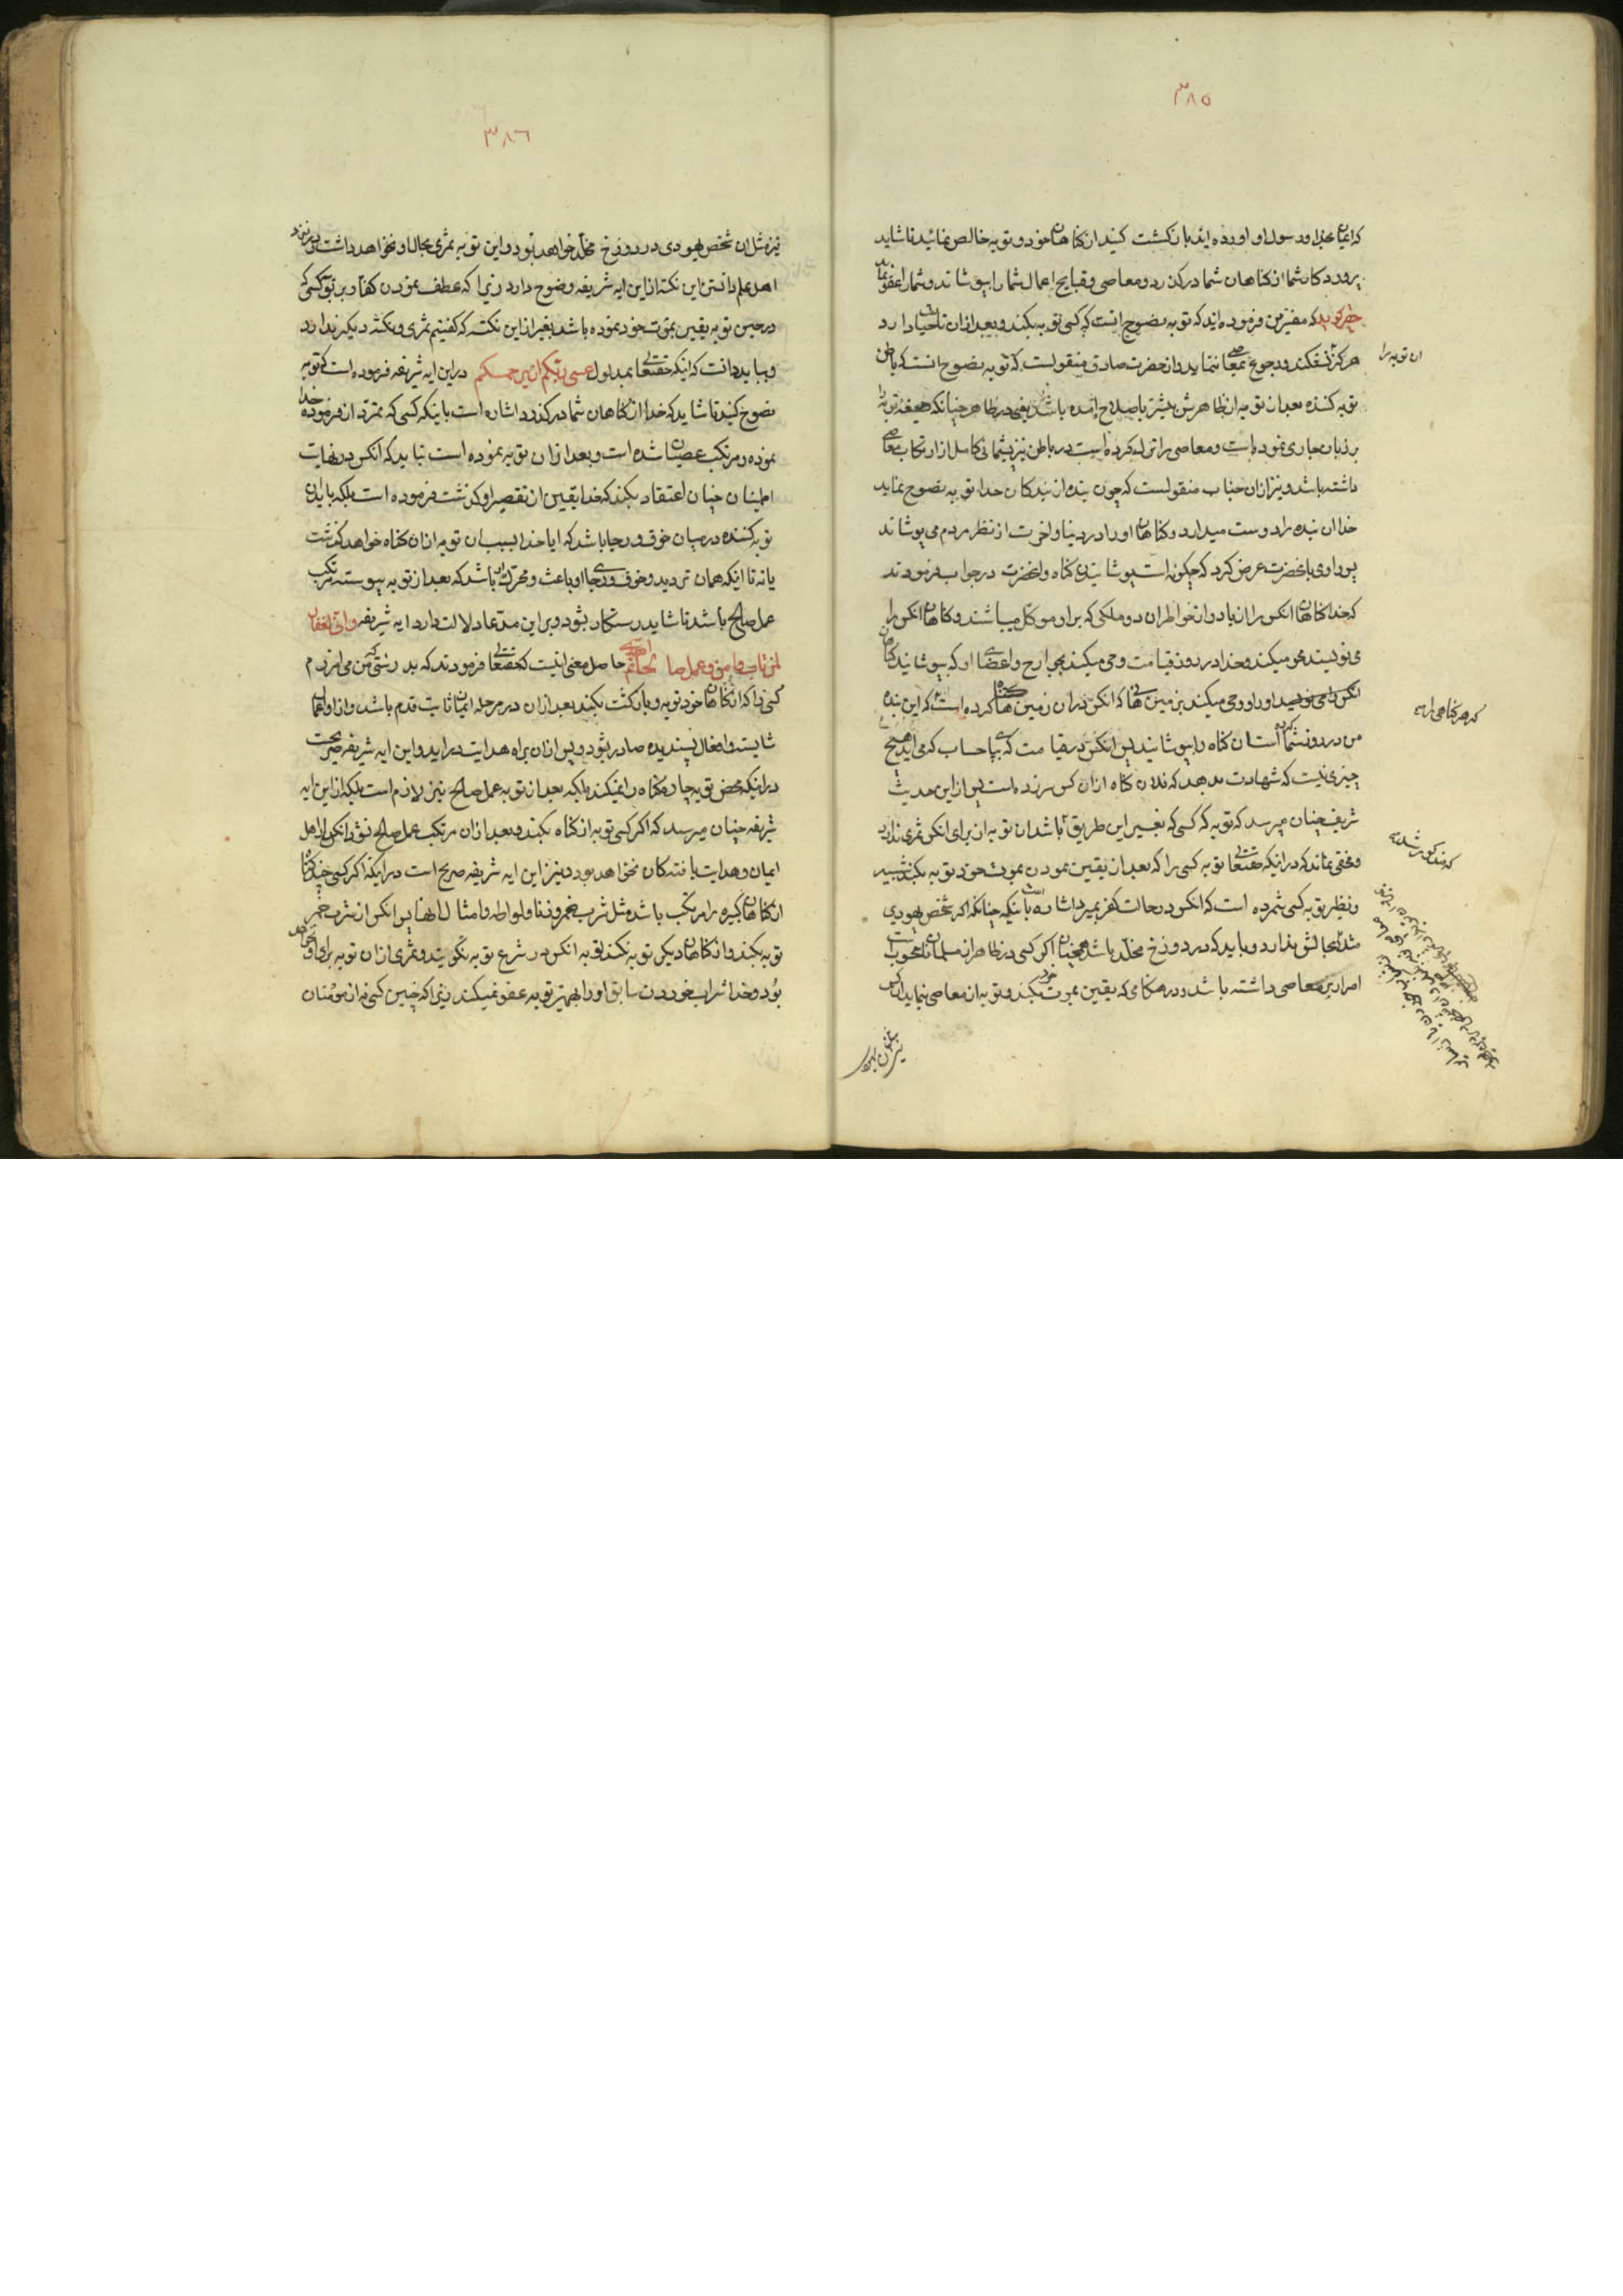 ٣٨٥
که ایمان بخدا و رسول او اورده اید بازگشت کنید از کناهان خود و توبه خالص نمائید تا شاید
پروردکار شما از کناهان شما درکذرد و معاصی و قبایح اعمال شما را بپوشاند و شما را عفو نماید
حقیر کوید که مفسرین فرموده اند که توبه نصوح انست که کسی توبه بکند و بعد از ان تا حیات دارد
هرکز نشکند و رجوع بمعاصی ننماید و از حضرت صادق منقولست که توبه نصوح انست که باطن
ان توبه را
توبه کننده بعد از توبه از ظاهرش بیشتر باصلاح امده باشد یعنی در ظاهر چنانکه صیغه توبه را
بر زبان جاری نموده است و معاصی را ترک کرده است در باطن نیز پشیمانی کامل از ارتکاب معاصی
داشته باشد و نیز از ان جناب منقولست که چون بنده از بندکان خدا توبه نصوح نماید
خدا ان بنده را دوست میدارد و کناهان او را در دنیا و اخرت از نظر مردم می پوشاند
پس راوی بانحضرت عرض کرد که چکونه است پوشانیدن کناه و انحضرت در جواب فرمودند
که خدا کناهان انکس را از یاد و از خواطر ان دو ملکی که بر او موکل میباشند و کناهان انکس را
می نویسند محو میکند و خدا در روز قیامت وحی میکند بجوارح و اعضای او که بپوشانید کناهان
انکس را و وحی میکند بزمین هائی که انکس در ان زمین ها کناه کرده است که این بنده
که هر کناهی از
من در روی شما کرده است ان کناه را بپوشانید پس انکس در قیامت که بپای حساب که می اید هیچ
چیزی نیست که شهادت بدهد که فلان کناه از ان کس سر زده است پس از این حدیث
شریف چنان میرسد که توبه که کسی که بغیر این طریق باشد ان توبه از برای انکس ثمری ندارد
که مذکور شد
و مخفی نماند که در اینکه حقتعالی توبه کسی را که بعد از یقین نمودن بموت خود توبه بکند شبیه
و نظیر توبه کسی شمرده است که انکس در حالت کفر بمیرد اشاره است باینکه چنانکه اکر شخص یهودی
مثلا بحالش بذارد و باید که در دوزخ مخلد باشد همچنان اکر کسی در ظاهر از مسلمانان محسوب است
اما در بین معاصی داشته باشد و در هنکامی که یقین بموت خود بکند و توبه از معاصی بنماید ان کس
٣٨٦
نیز مثل ان شخص یهودی در دوزخ مخلد خواهد بود و این توبه ثمری بحال او نخواهد داشت و در نزد
اهل علم دانستن این نکته از این ایه شریفه وضوح دارد زیرا که عطف نمودن کفار بر توبه کسی که
در حین توبه یقین بموت خود نموده باشد بغیر از این نکته که کفتیم ثمری و نکته دیکر ندارد
و بباید دانست که اینکه حقتعالی بمدلول عسی ربکم ان یرحمکم در این ایه شریفه فرموده است که توبه
نصوح کنید تا شاید که خدا از کناهان شما درکذرد اشاره است باینکه کسی که تمرد از فرموده خدا
نموده و مرتکب عصیان شده است و بعد از ان توبه نموده است نباید که انکس در نهایت
اطمینان چنان اعتقاد بکند که خدا بیقین از تقصیر او کذشت فرموده است بلکه باید ان
توبه کننده در میان خوف و رجا باشد که ایا خدا بسبب ان توبه از ان کناه خواهد کذشت
یا نه تا اینکه همان تردید و خوف و رجای او باعث و محرک ان باشد که بعد از توبه پیوسته مرتکب
عمل صالح باشد تا شاید رستکار بشود و بر این مدعا دلالت دارد ایه شریفه وانی لغفار
لمن تاب وامن وعمل صالحا ثم اهتدی حاصل معنی اینست که حقتعالی فرمودند که بدرستی که من می امرزم
کسی را که از کناهان خود توبه و بازکشت بکند بعد از ان در مرحله ایمان ثابت قدم باشد و از او اعمال
شایسته و افعال پسندیده صادر بشود و پس از ان براه هدایت در اید و این ایه شریفه صریحست
در اینکه محض توبه چاره کناه را نمیکند بلکه بعد از توبه عمل صالح نیز لازم است بلکه از این ایه
شریفه چنان میرسد که اکر کسی توبه از کناه بکند و بعد از ان مرتکب عمل صالح نشود انکس از اهل
ایمان و هدایت یافته کان نخواهد بود و نیز این ایه شریفه صریح است در اینکه اکر کسی چند کناه
از کناهان کبیره را مرتکب باشد مثل شرب خمر و زنا و لواط و امثال انها پس انکس از شرب خمر
توبه بکند و از کناهان دیکر توبه نکند توبه انکس در شرع توبه نکویند و ثمری از ان توبه برای او نخواهد
بود و خدا شراب خوردن سابق او را بهمین توبه عفو نمیکند زیرا که چنین کسی نه از مؤمنان